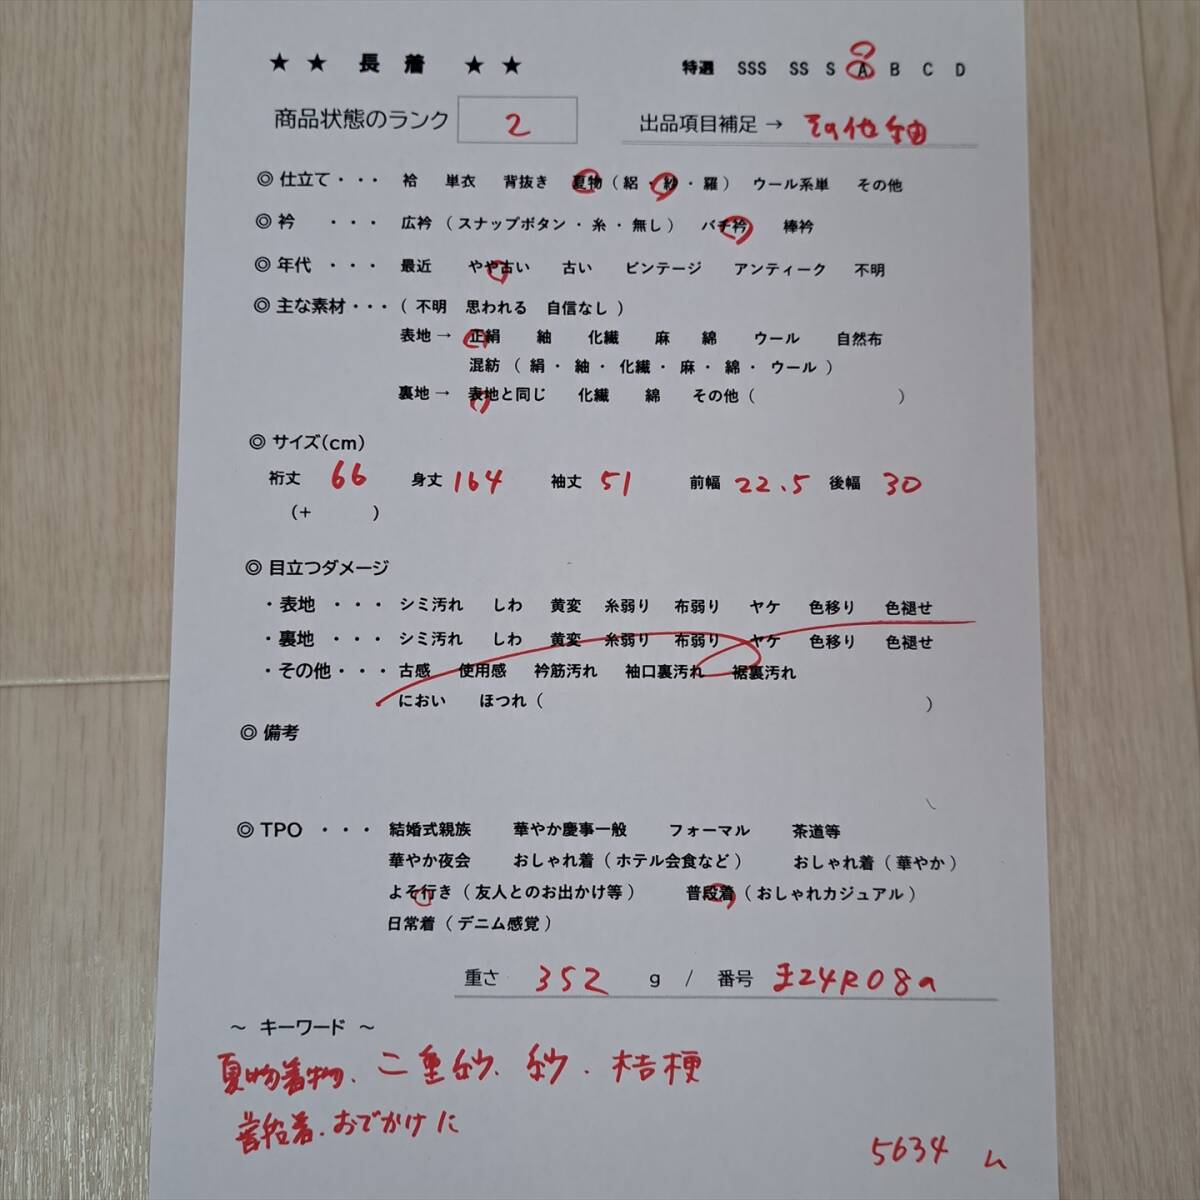 ★ ★ 長 着 ★ ★ 特選 SSS SS S A B C D
商品状態のランク 2 出品項目補足 → その他紬
◎ 仕立て・・・ 袷 単衣 背抜き 夏物 ( 絽 ・ 紗 ・ 羅 ) ウール系単 その他
◎ 衿 ・・・ 広衿 ( スナップボタン ・ 糸 ・ 無し ) バチ衿 棒衿
◎ 年代 ・・・ 最近 やや古い 古い ビンテージ アンティーク 不明
◎ 主な素材・・・ ( 不明 思われる 自信なし )
表地 → 正絹 紬 化繊 麻 綿 ウール 自然布
混紡 ( 絹 ・ 紬 ・ 化繊 ・ 麻 ・ 綿 ・ ウール )
裏地 → 表地と同じ 化繊 綿 その他 ( )
◎ サイズ(cm)
裄丈 66 身丈 164 袖丈 51 前幅 22.5 後幅 30
(+ )
◎ 目立つダメージ
・表地 ・・・ シミ汚れ しわ 黄変 糸弱り 布弱り ヤケ 色移り 色褪せ
・裏地 ・・・ シミ汚れ しわ 黄変 糸弱り 布弱り ヤケ 色移り 色褪せ
・その他・・・ 古感 使用感 衿筋汚れ 袖口裏汚れ 裾裏汚れ
におい ほつれ ( )
◎ 備考
◎ TPO ・・・ 結婚式親族 華やか慶事一般 フォーマル 茶道等
華やか夜会 おしゃれ着 ( ホテル会食など ) おしゃれ着 ( 華やか )
よそ行き ( 友人とのお出かけ等 ) 普段着 ( おしゃれカジュアル )
日常着 ( デニム感覚 )
重さ 352 g / 番号 24R08a
～ キーワード ～
夏物着物、二重紗、紗、桔梗
普段着、おでかけに
5634 ム